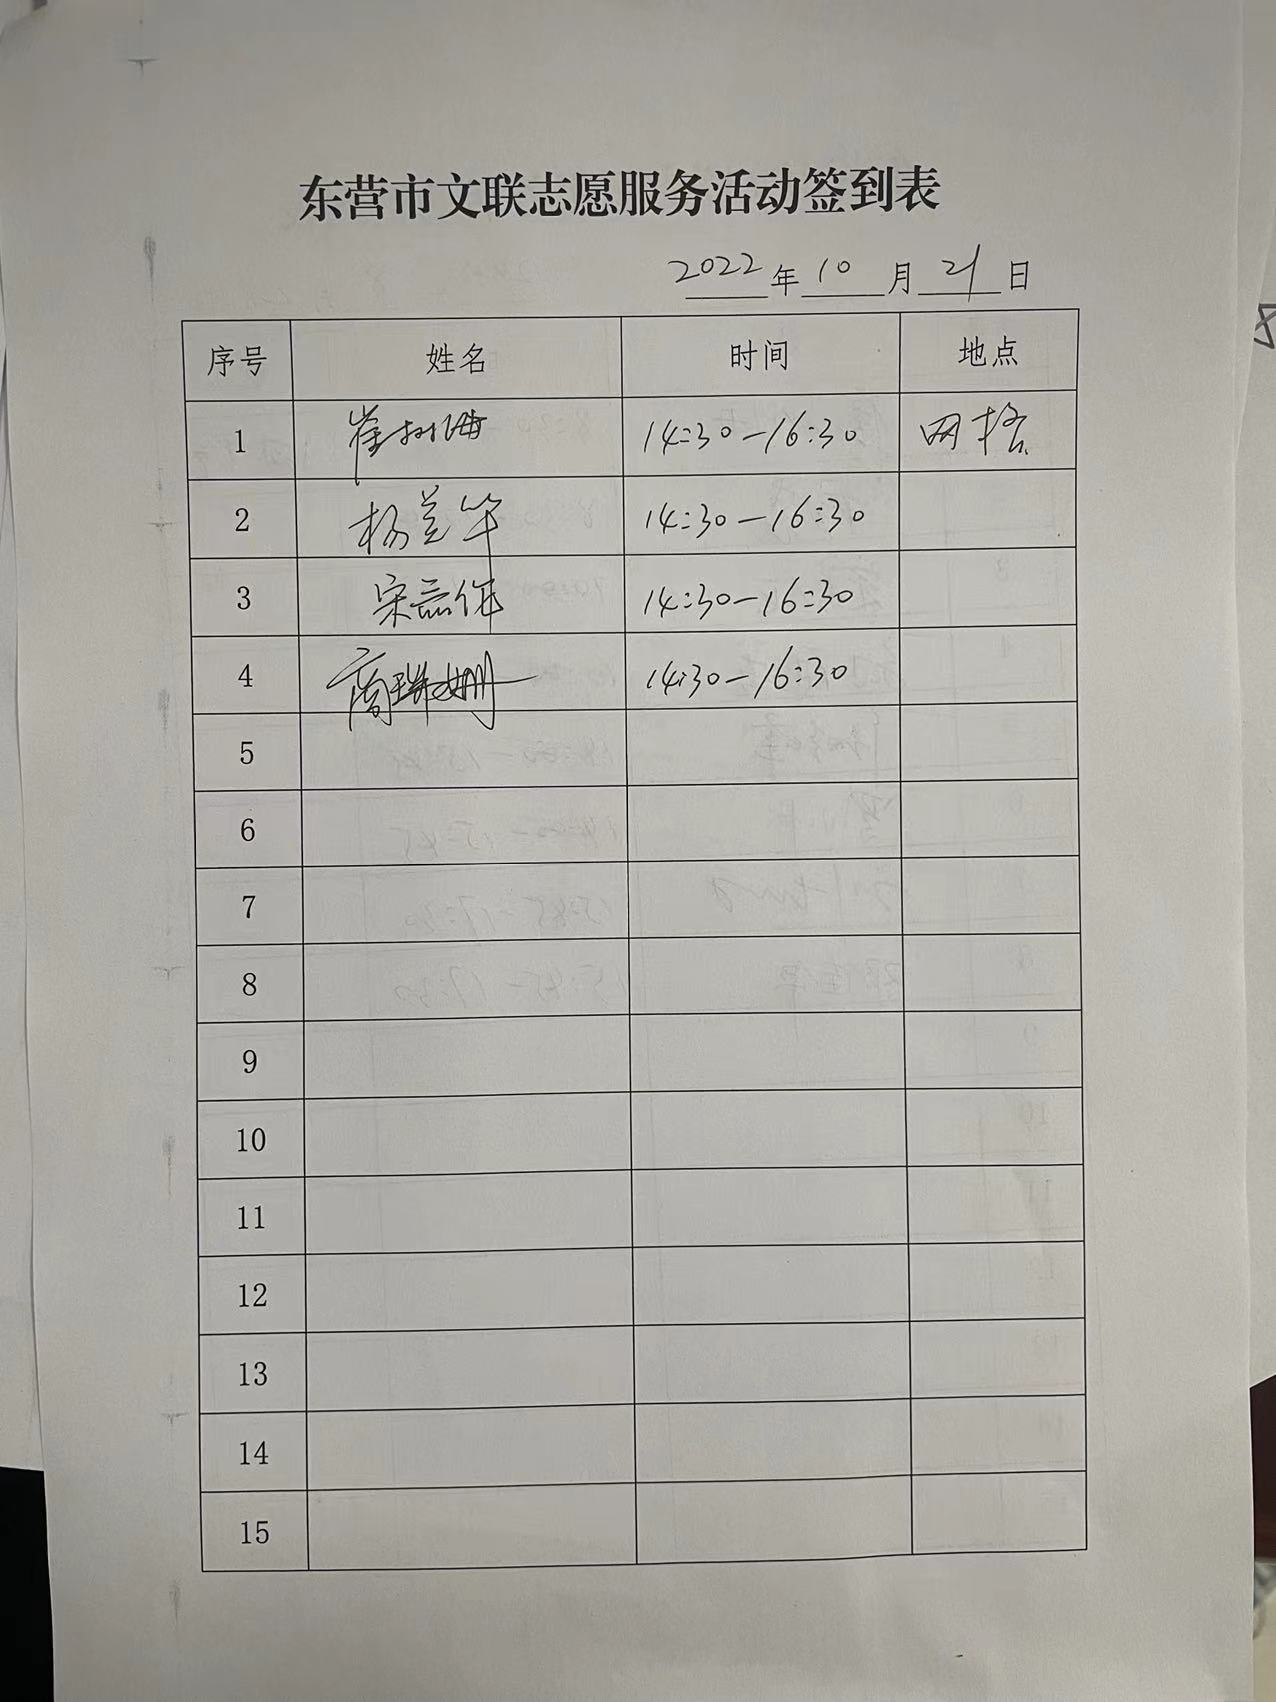 东营市文联志愿服务活动签到表
2022年10月21日
序号 姓名 时间 地点
1 崔树海 14:30-16:30 网格
2 杨兰华 14:30-16:30
3 宋 14:30-16:30
4 商珠姗 14:30-16:30
5
6
7
8
9
10
11
12
13
14
15